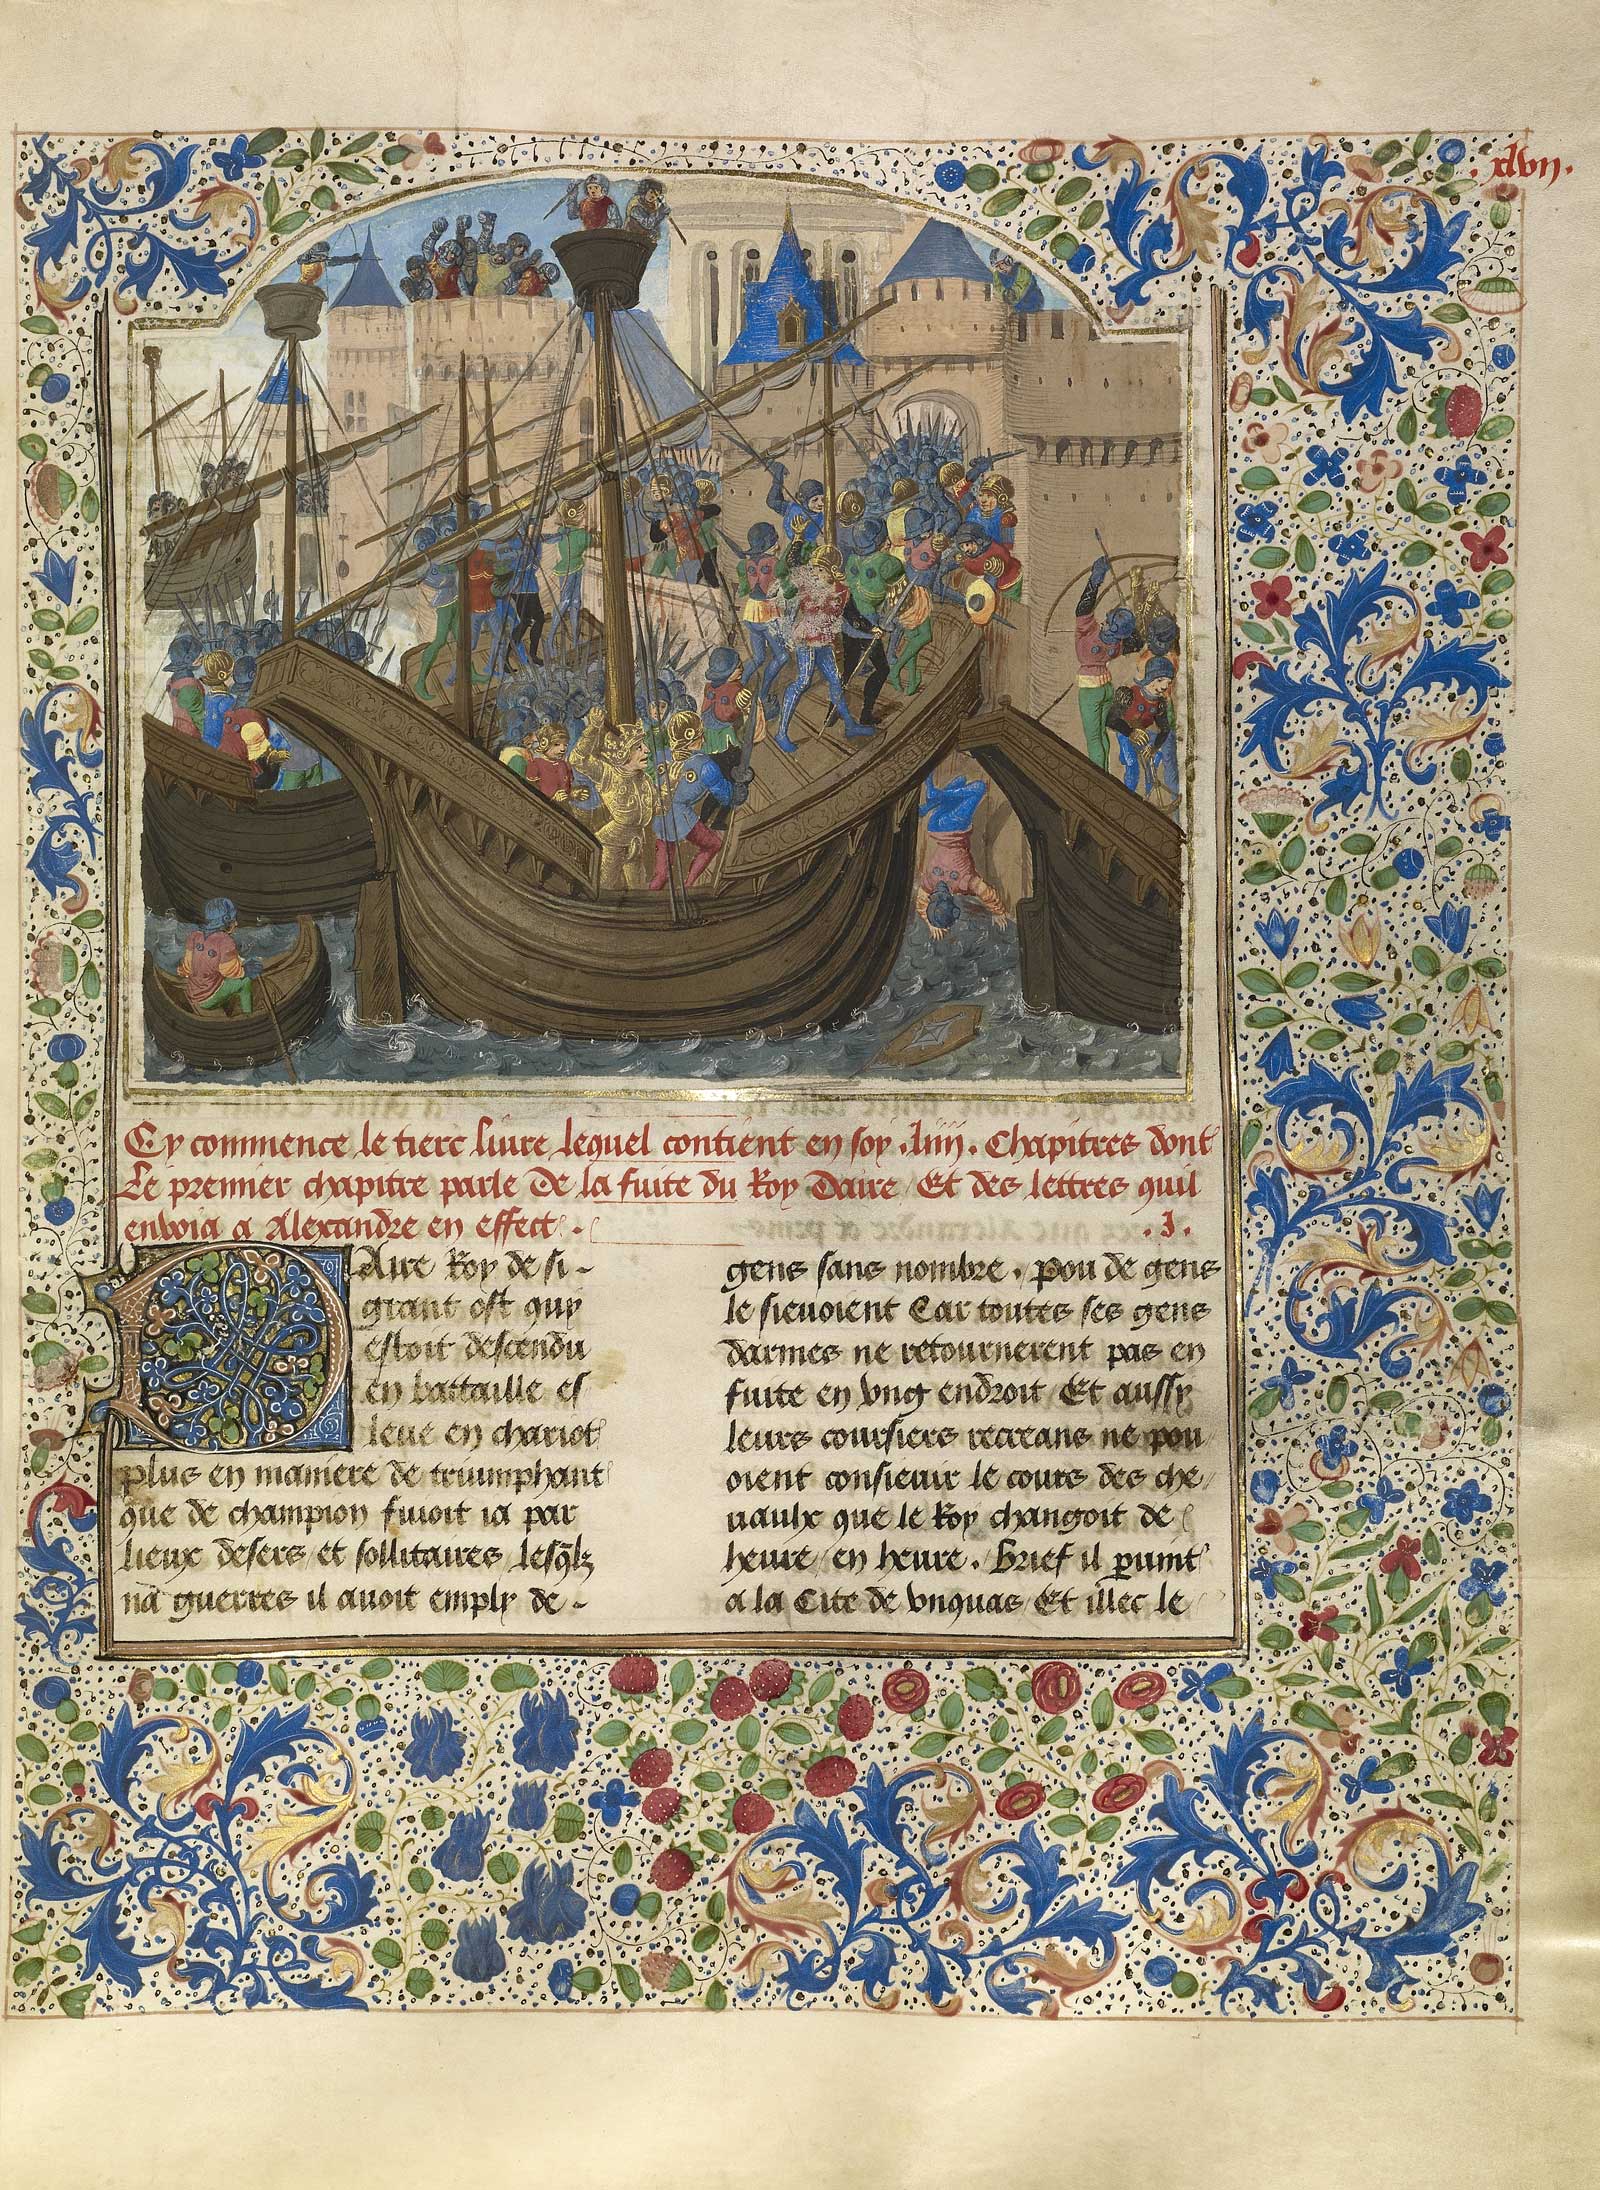 .xlvii.
Cy commence le tierc livre lequel contient en soy .liiii. Chapitres dont
Le premier chapitre parle De la fuite du Roy Daire / Et des lettres quil
envoia a Alexandre en effect .
.I.
DAire Roy de si
grant ost quy
estoit descendu
en battaille es
leue en chariot
plus en maniere de triumphant
que de champion fuioit ia par
lieux desers / et sollitaires / lesqlz
na guerres il auoit emply de
gens sans nombre . pou de gens
le sieuoient Car toutes ses gens
darmes ne retournerent pas en
fuite en vng endroit / Et aussy
leurs coursiers recreans ne pou
oient consieuir le cours des che
uaulx que le Roy changoit de
heure / en heure . Brief il paruint
a la Cite de vnquas / Et illec le